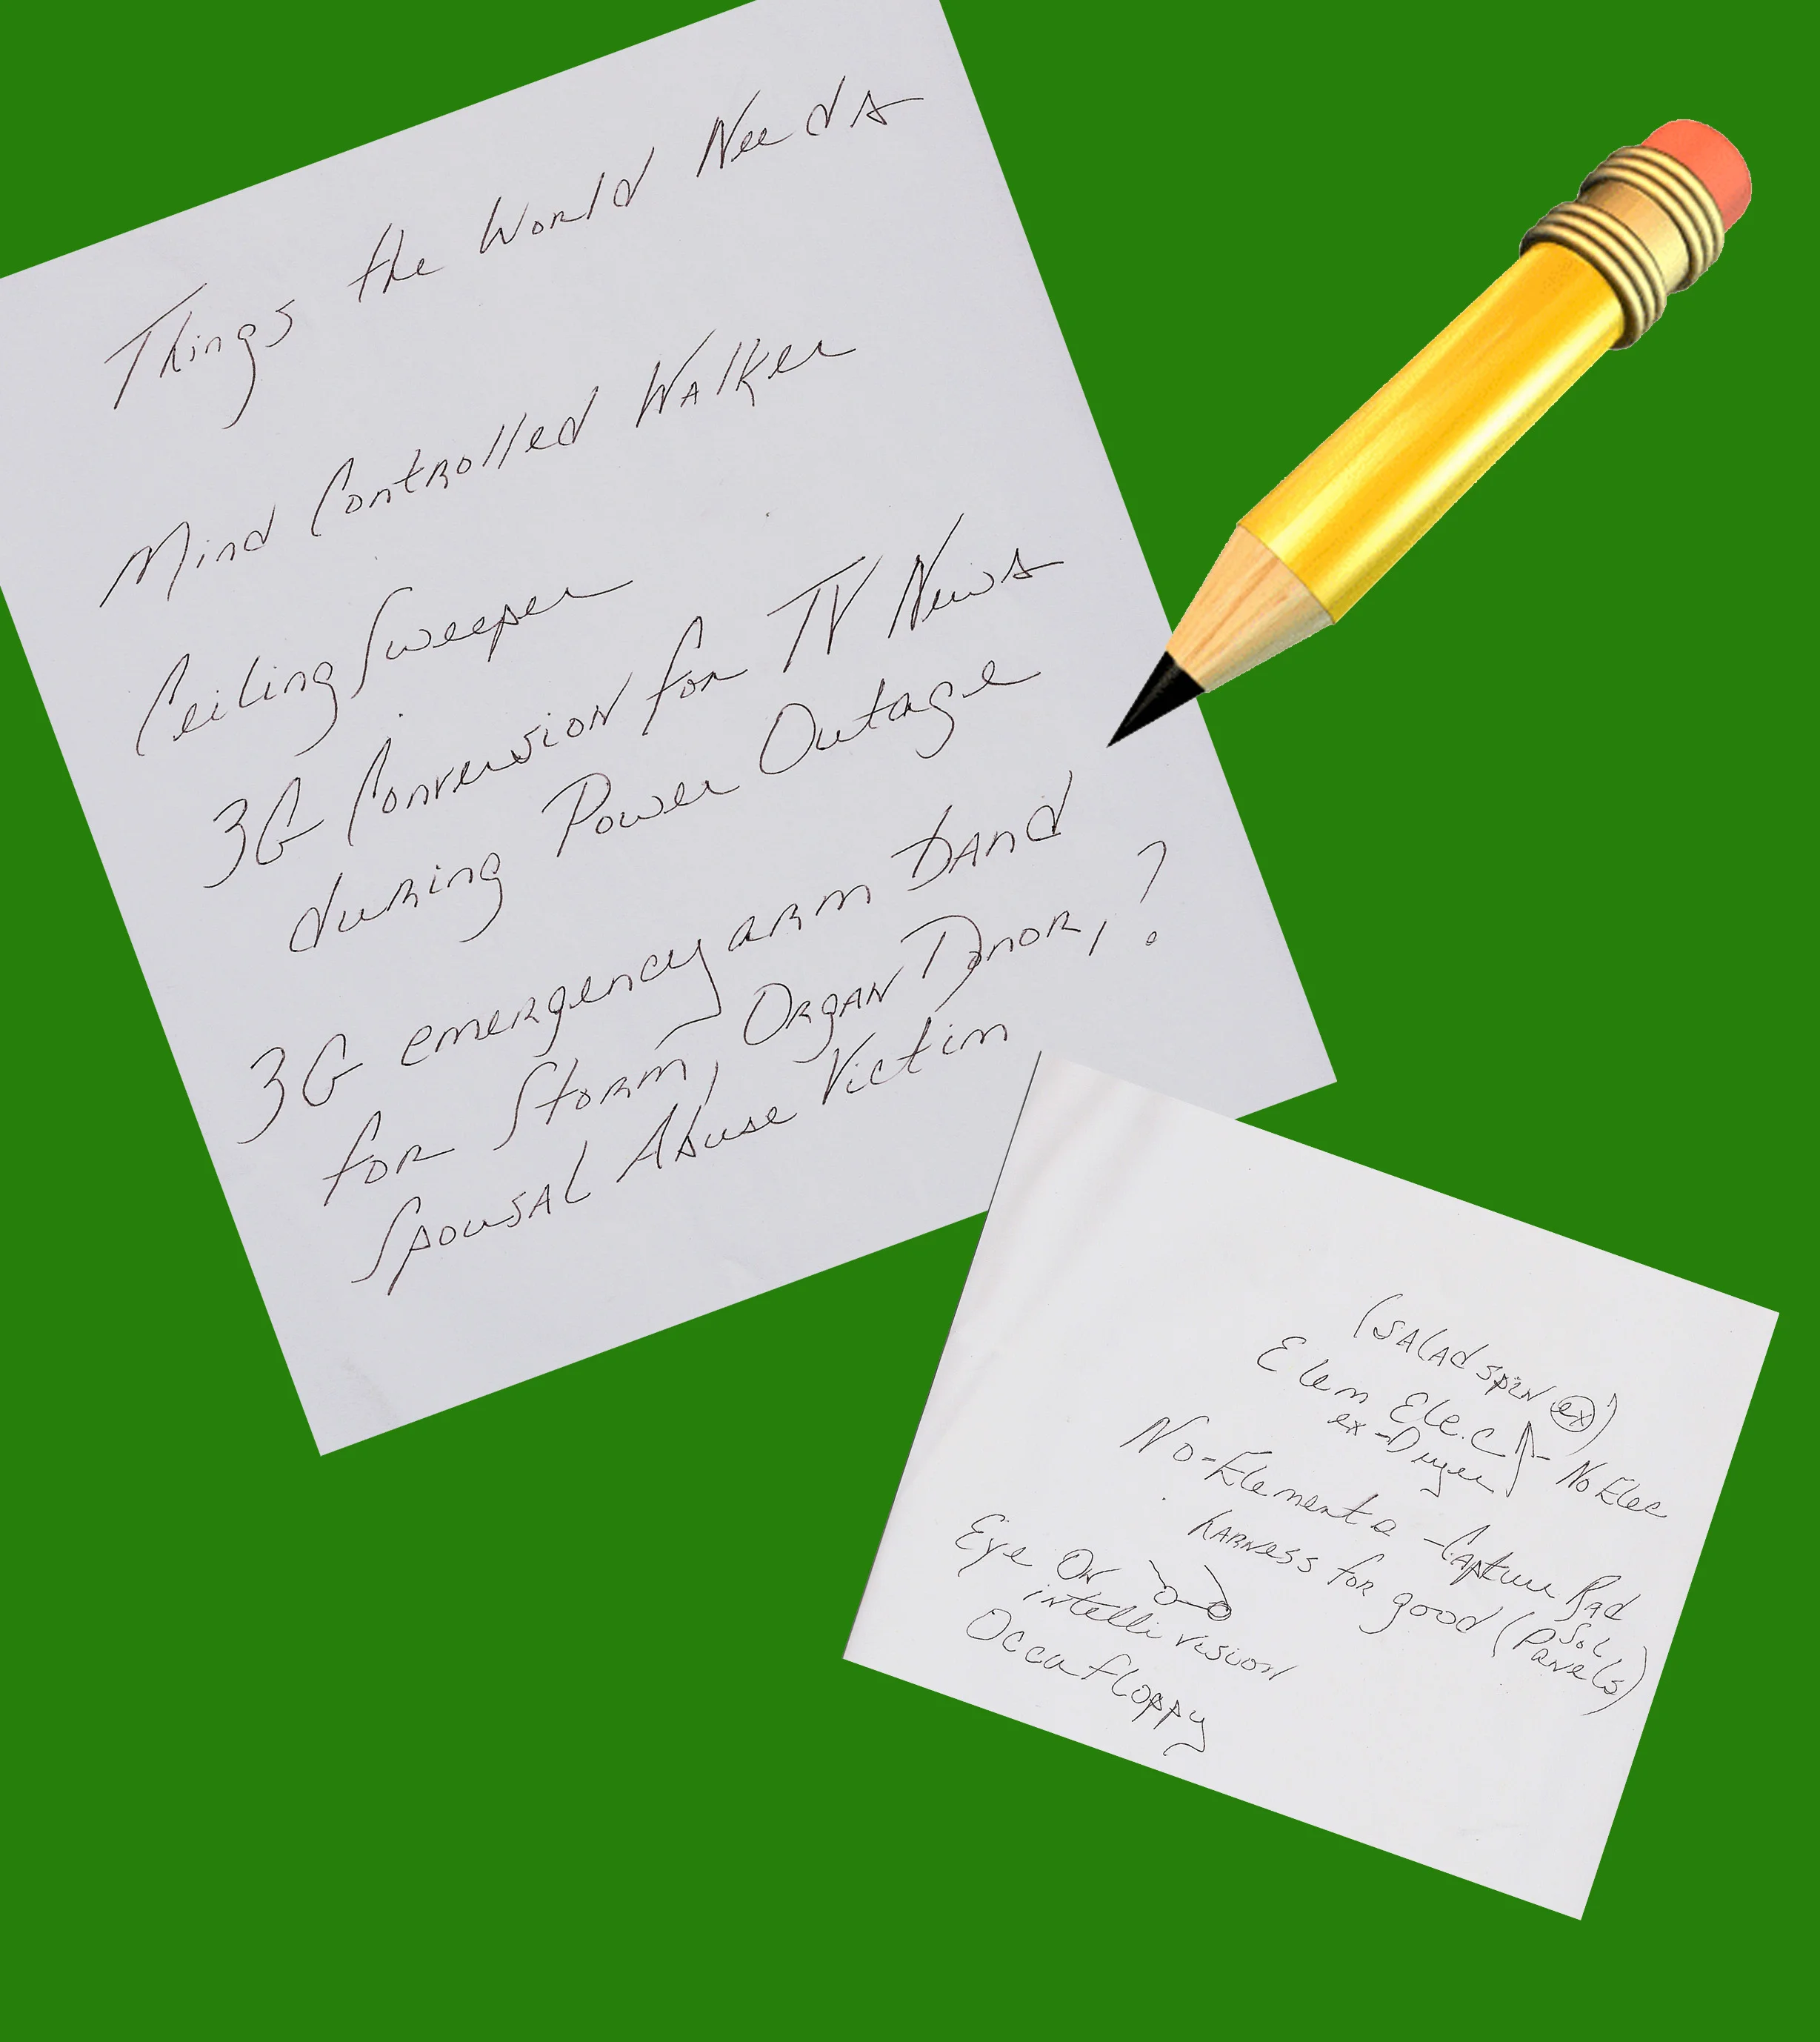 Things the World Needs
Mind Controlled Walker
Ceiling Sweeper
3G Conversion for TV News
during Power Outage
3G emergency arm band
for Storm, Organ Donor, ?
Spousal Abuse Victim
(salad spin ex)
Elem Elec
ex-Dryer - No Elec
No-Elements - Capture Rad
harness for good (Sol
Panels)
Eye On
intellivision
Occu floppy